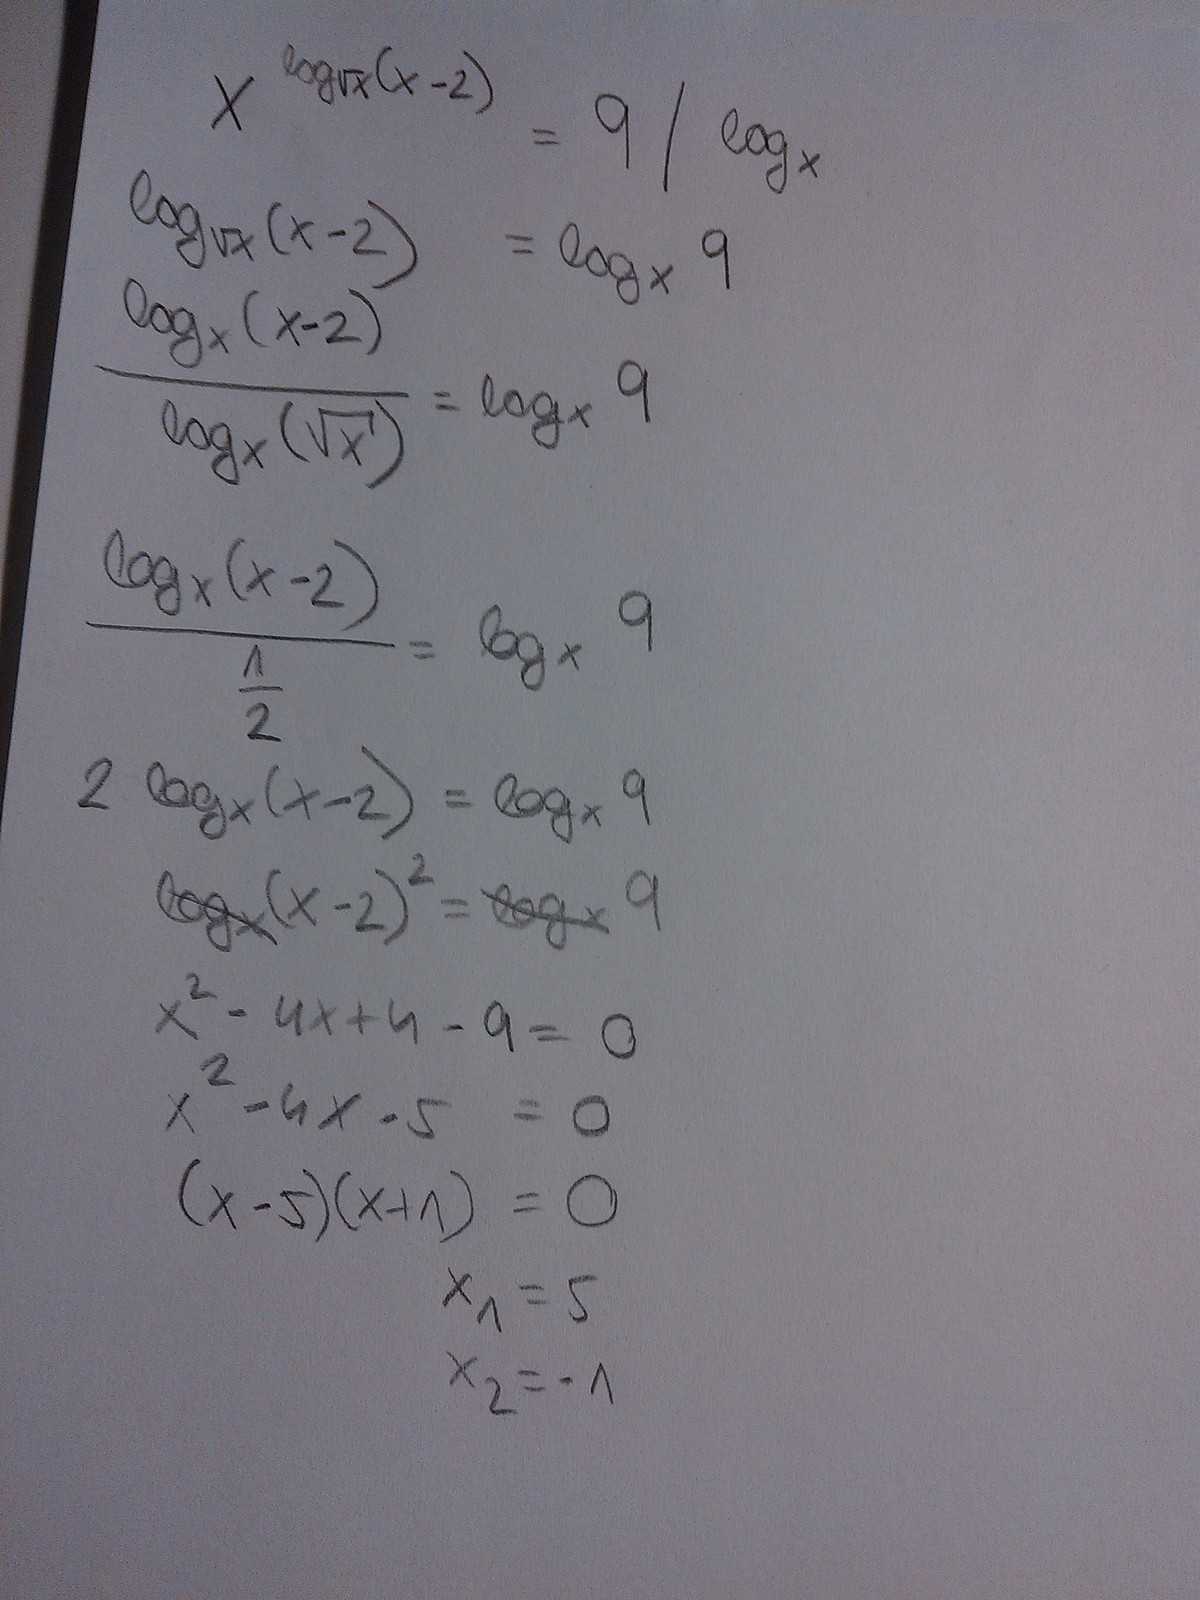 x^(log_√x(x-2)) = 9 / log_x
log_√x(x-2) = log_x 9
log_x(x-2) / log_x(√x) = log_x 9
log_x(x-2) / (1/2) = log_x 9
2 log_x(x-2) = log_x 9
log_x(x-2)² = log_x 9
x² - 4x + 4 - 9 = 0
x² - 4x - 5 = 0
(x-5)(x+1) = 0
x₁ = 5
x₂ = -1